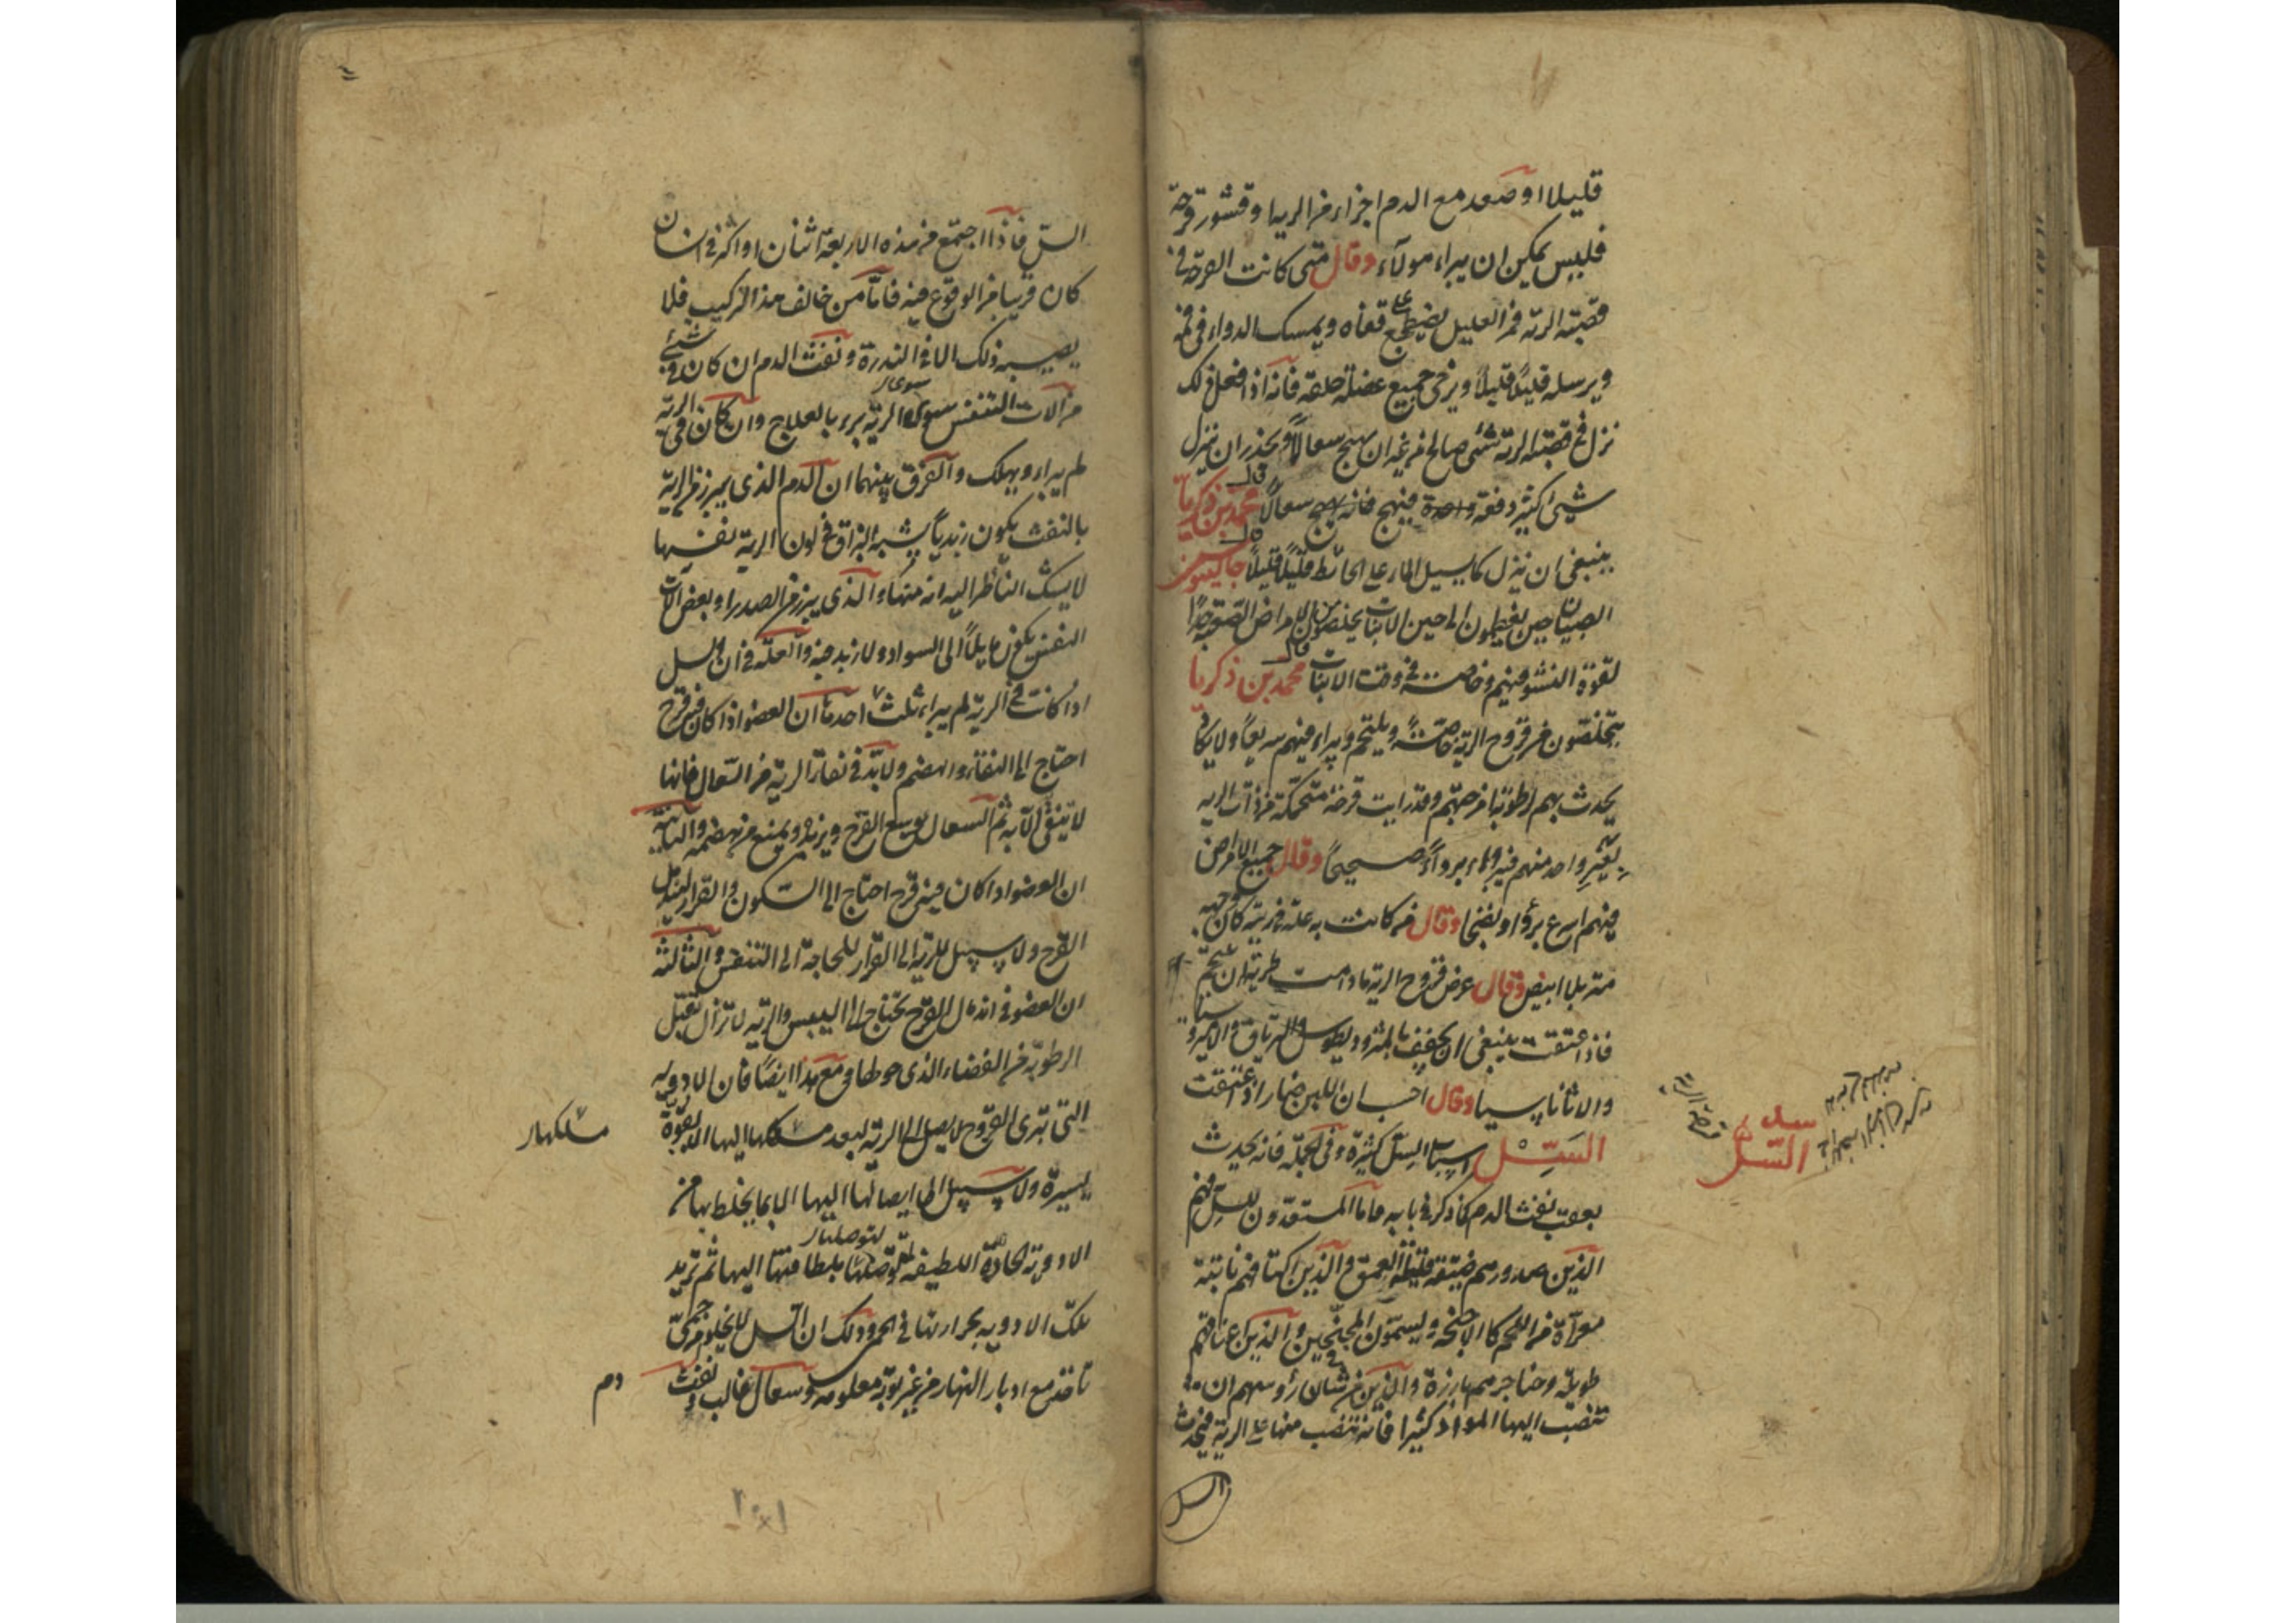 قليلا اوصعد مع الدم اجزاء من الرية او قشور قرحة
فليس يمكن ان يبراء هولاء وقال متى كانت القرحة في
قصبة الرية فمر العليل يضطجع على قفاه ويمسك الدواء في فمه
ويرسله قليلًا قليلًا ويرخى جميع عضلة حلقه فانه اذا فعل ذلك
نزل في قصبة الرية شئ صالح من غير ان يهيج سعالًا ويحذر ان ينزل
شئ كثير دفعة واحدة فانه يهيج سعالًا قال محمد بن زكريا
ينبغى ان ينزل كما يسيل الماء على الحائط قليلًا قليلًا قال جالينوس
الصبيان حين يفطمون الى حين الانبات يخلصون من الامراض الصعبة جدًا
لقوة النشو فيهم وخاصة في وقت الانبات قال محمد بن ذكريا
يتخلصون من قروح الرية خاصة ويلتحم ويبراء فيهم سريعًا ولا يكاد
يحدث بهم رطوبة وقد رايت قرحة من ذات الرية
واحد منهم برواً صحيحًا وقال جميع الامراض
فيهم اسرع برؤا ونضجا وقال من كانت به علة في ريته كان وجهه
متربلا ابيض وقال عرض قروح الرية ما دامت طرية ان تلتحم
فاذا عتقت ينبغى ان يجفف بالمثروديطوس والترياق
والاثاناسيا وقال احسب ان اللبن ضار اذا عتقت
السّل اسباب السل كثيرة وفى الجملة فانه يحدث
بعقب نفث الدم كما ذكر في بابه فاما المستعدّون للسل فهم
الذين صدورهم ضيقة قليلة العمق والذين اكتافهم ناتية
معراة من اللحم كالاجنحة ويسمّون المجنّحين والذين اعناقهم
طويلة وحناجرهم بارزة والذين من شان رؤوسهم ان
تنصب اليها المواد كثيرا فانه تنصب منها على الرية فيحدث
السل
سل
السّل
السل فاذا اجتمع من هذه الاربعة اثنان او اكثر في انسان
كان قريبا من الوقوع فيه فامّا من خالف هذا التركيب فلا
يصيبه ذلك الا في الندرة ونفث الدم ان كان في شئ
من الات التنفس سوى الرية برء بالعلاج وان كان فى الرية
لم يبراء ويهلك والفرق بينهما ان الدم الذى يبرز من الرية
بالنفث يكون زبديًا يشبه البزاق في لون الرية نفسها
لا يشك الناظر اليه انه منها والذى يبرز من الصدر او بعض الات
النفس يكون مايلًا الى السواد ولا زبد فيه والعلة في ان السل
اذا كانت في الرية لم يبراء ثلث احدها ان العضو اذا كان فيه قرح
احتاج الى النقاء والهضم ولا بدّ في نقاء الرية من السعال فانها
لا تنقى الا به ثم السعال يوسع القرح ويزيده ويمنع من هضمه والثانية
ان العضو اذا كان فيه قرح احتاج الى السكون والقرار ليندمل
القرح ولا سبيل للرية الى القرار للحاجة الى التنفس والثالثة
ان العضو في اندمال القرح يحتاج الى اليبس والرية لا تزال تقبل
الرطوبة من الفضاء الذى حولها مع هذا ايضًا فان الادوية
التى تبرى القروح لا يصل الى الرية لبعد مسلكها اليها الا بقوة
يسيرة ولا سبيل الى ايصالها اليها الا بما يخلط بها من
الادوية الحادة اللطيفة لتوصلها بلطافتها اليها ثم تزيد
تلك الادوية بحرارتها في الحمى وذلك ان السل لا يخلو من حمى
تاخذ مع ادبار النهار من غير نوبة معلومة وسعال غالب ونفث
مسلكها
دم